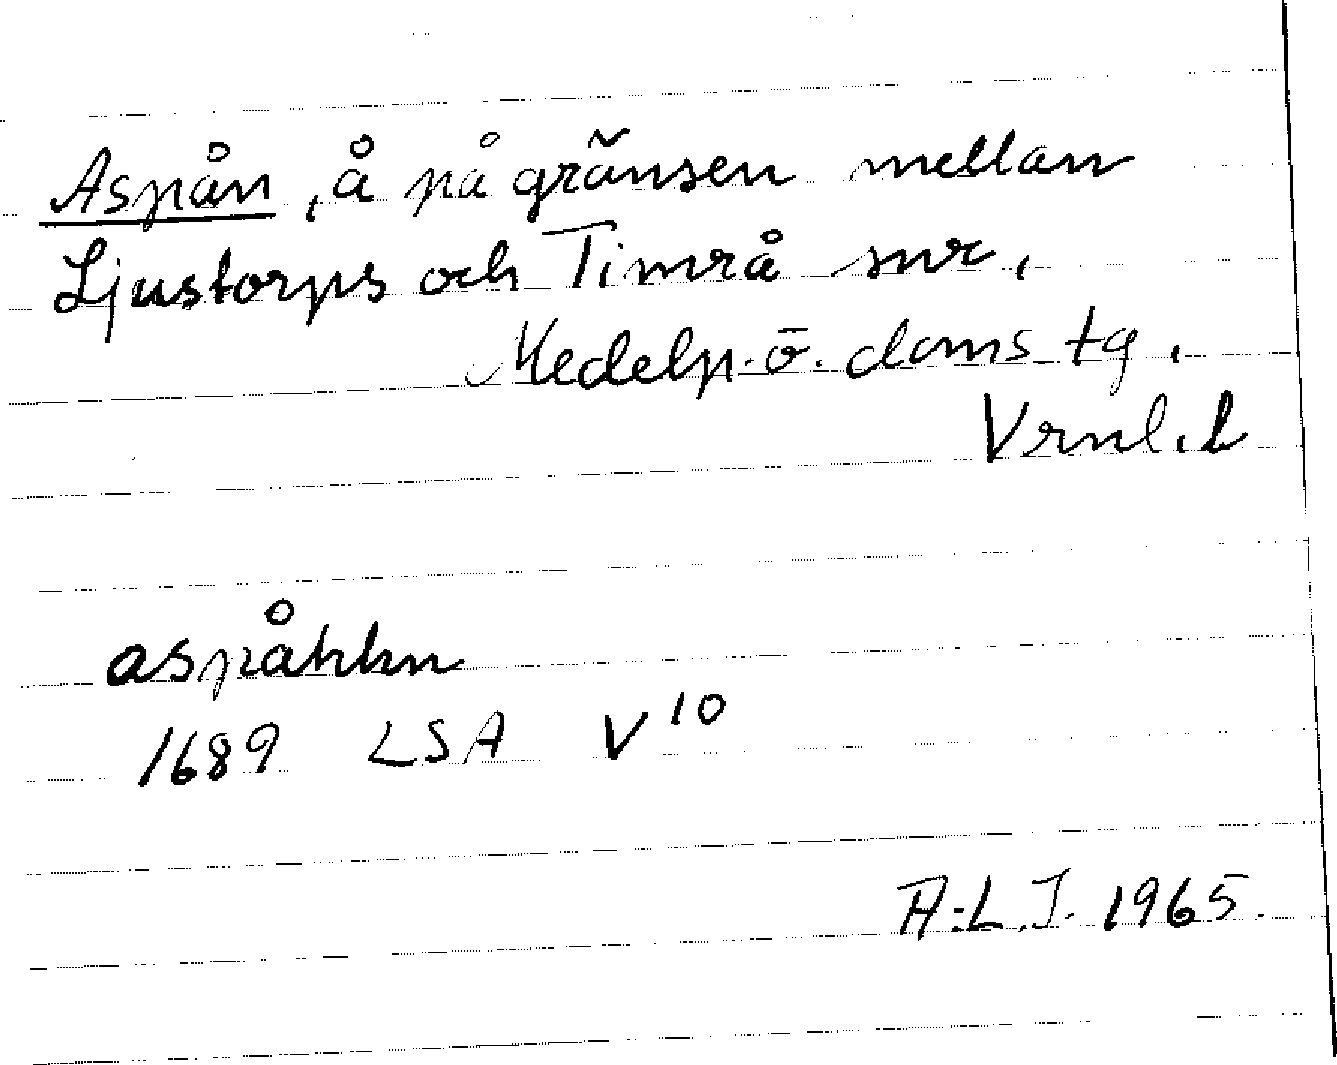 Aspån, å på gränsen mellan
Ljustorps och Timrå snr,
Medelp. ö. doms tg,
Vrnl. l
aspåhhn
1689 LSA V¹⁰
A.L.J. 1965.